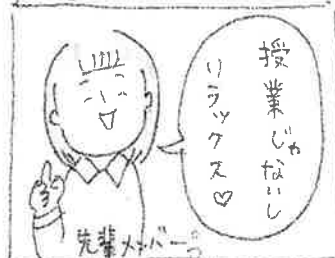 授業じゃないし
リラックス♡
先輩メンバー